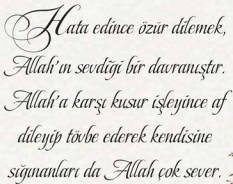 Hata edince özür dilemek,
Allah'ın sevdiği bir davranıştır.
Allah'a karşı kusur işleyince af
dileyip tövbe ederek kendisine
sığınanları da Allah çok sever.